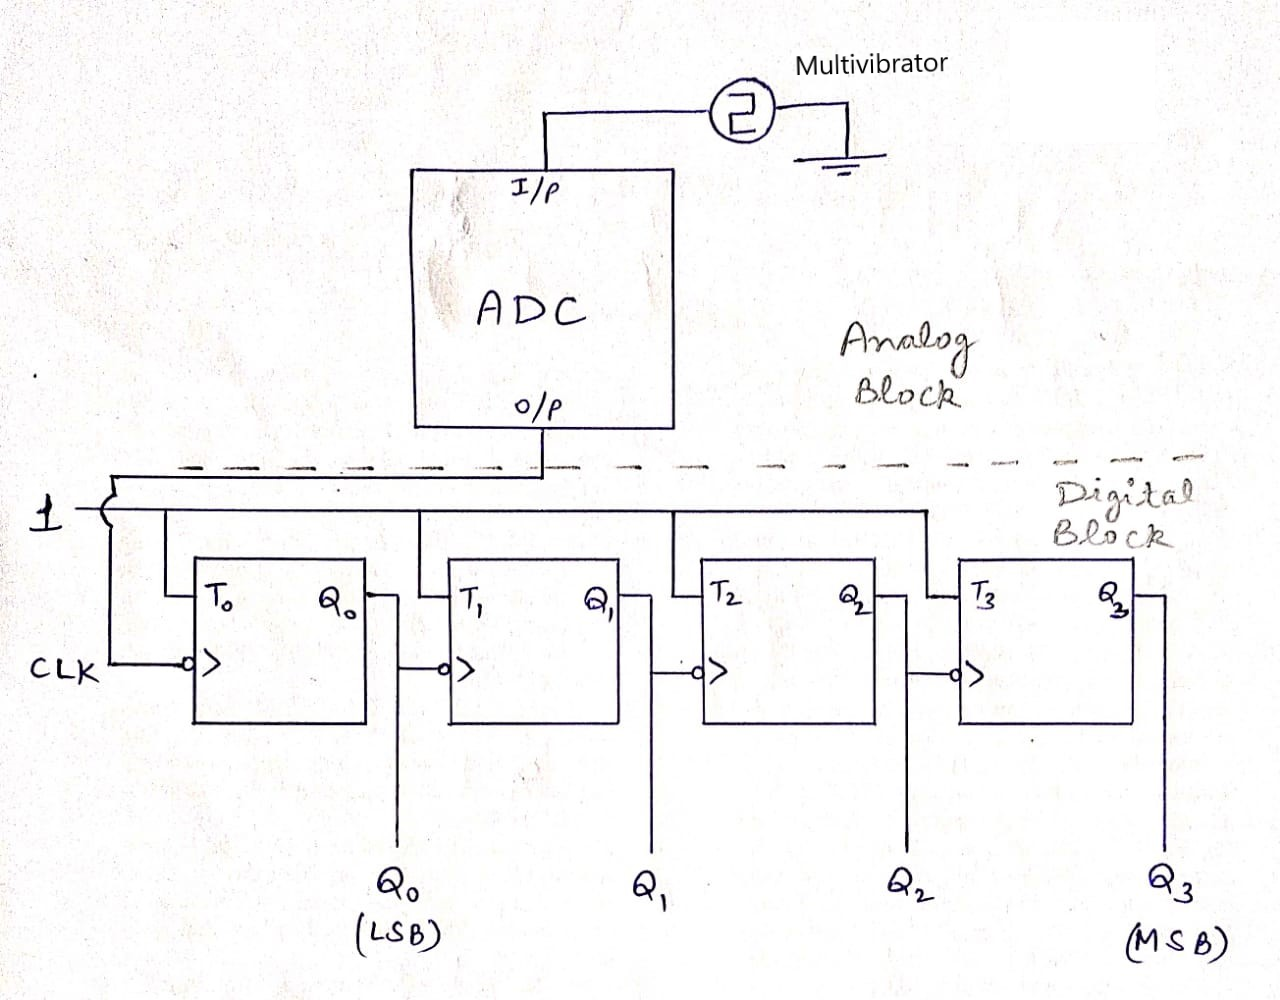 Multivibrator
I/P
ADC
O/P
Analog
Block
Digital
Block
1
T0 Q0 T1 Q1 T2 Q2 T3 Q3
CLK > > > >
Q0 Q1 Q2 Q3
(LSB) (MSB)